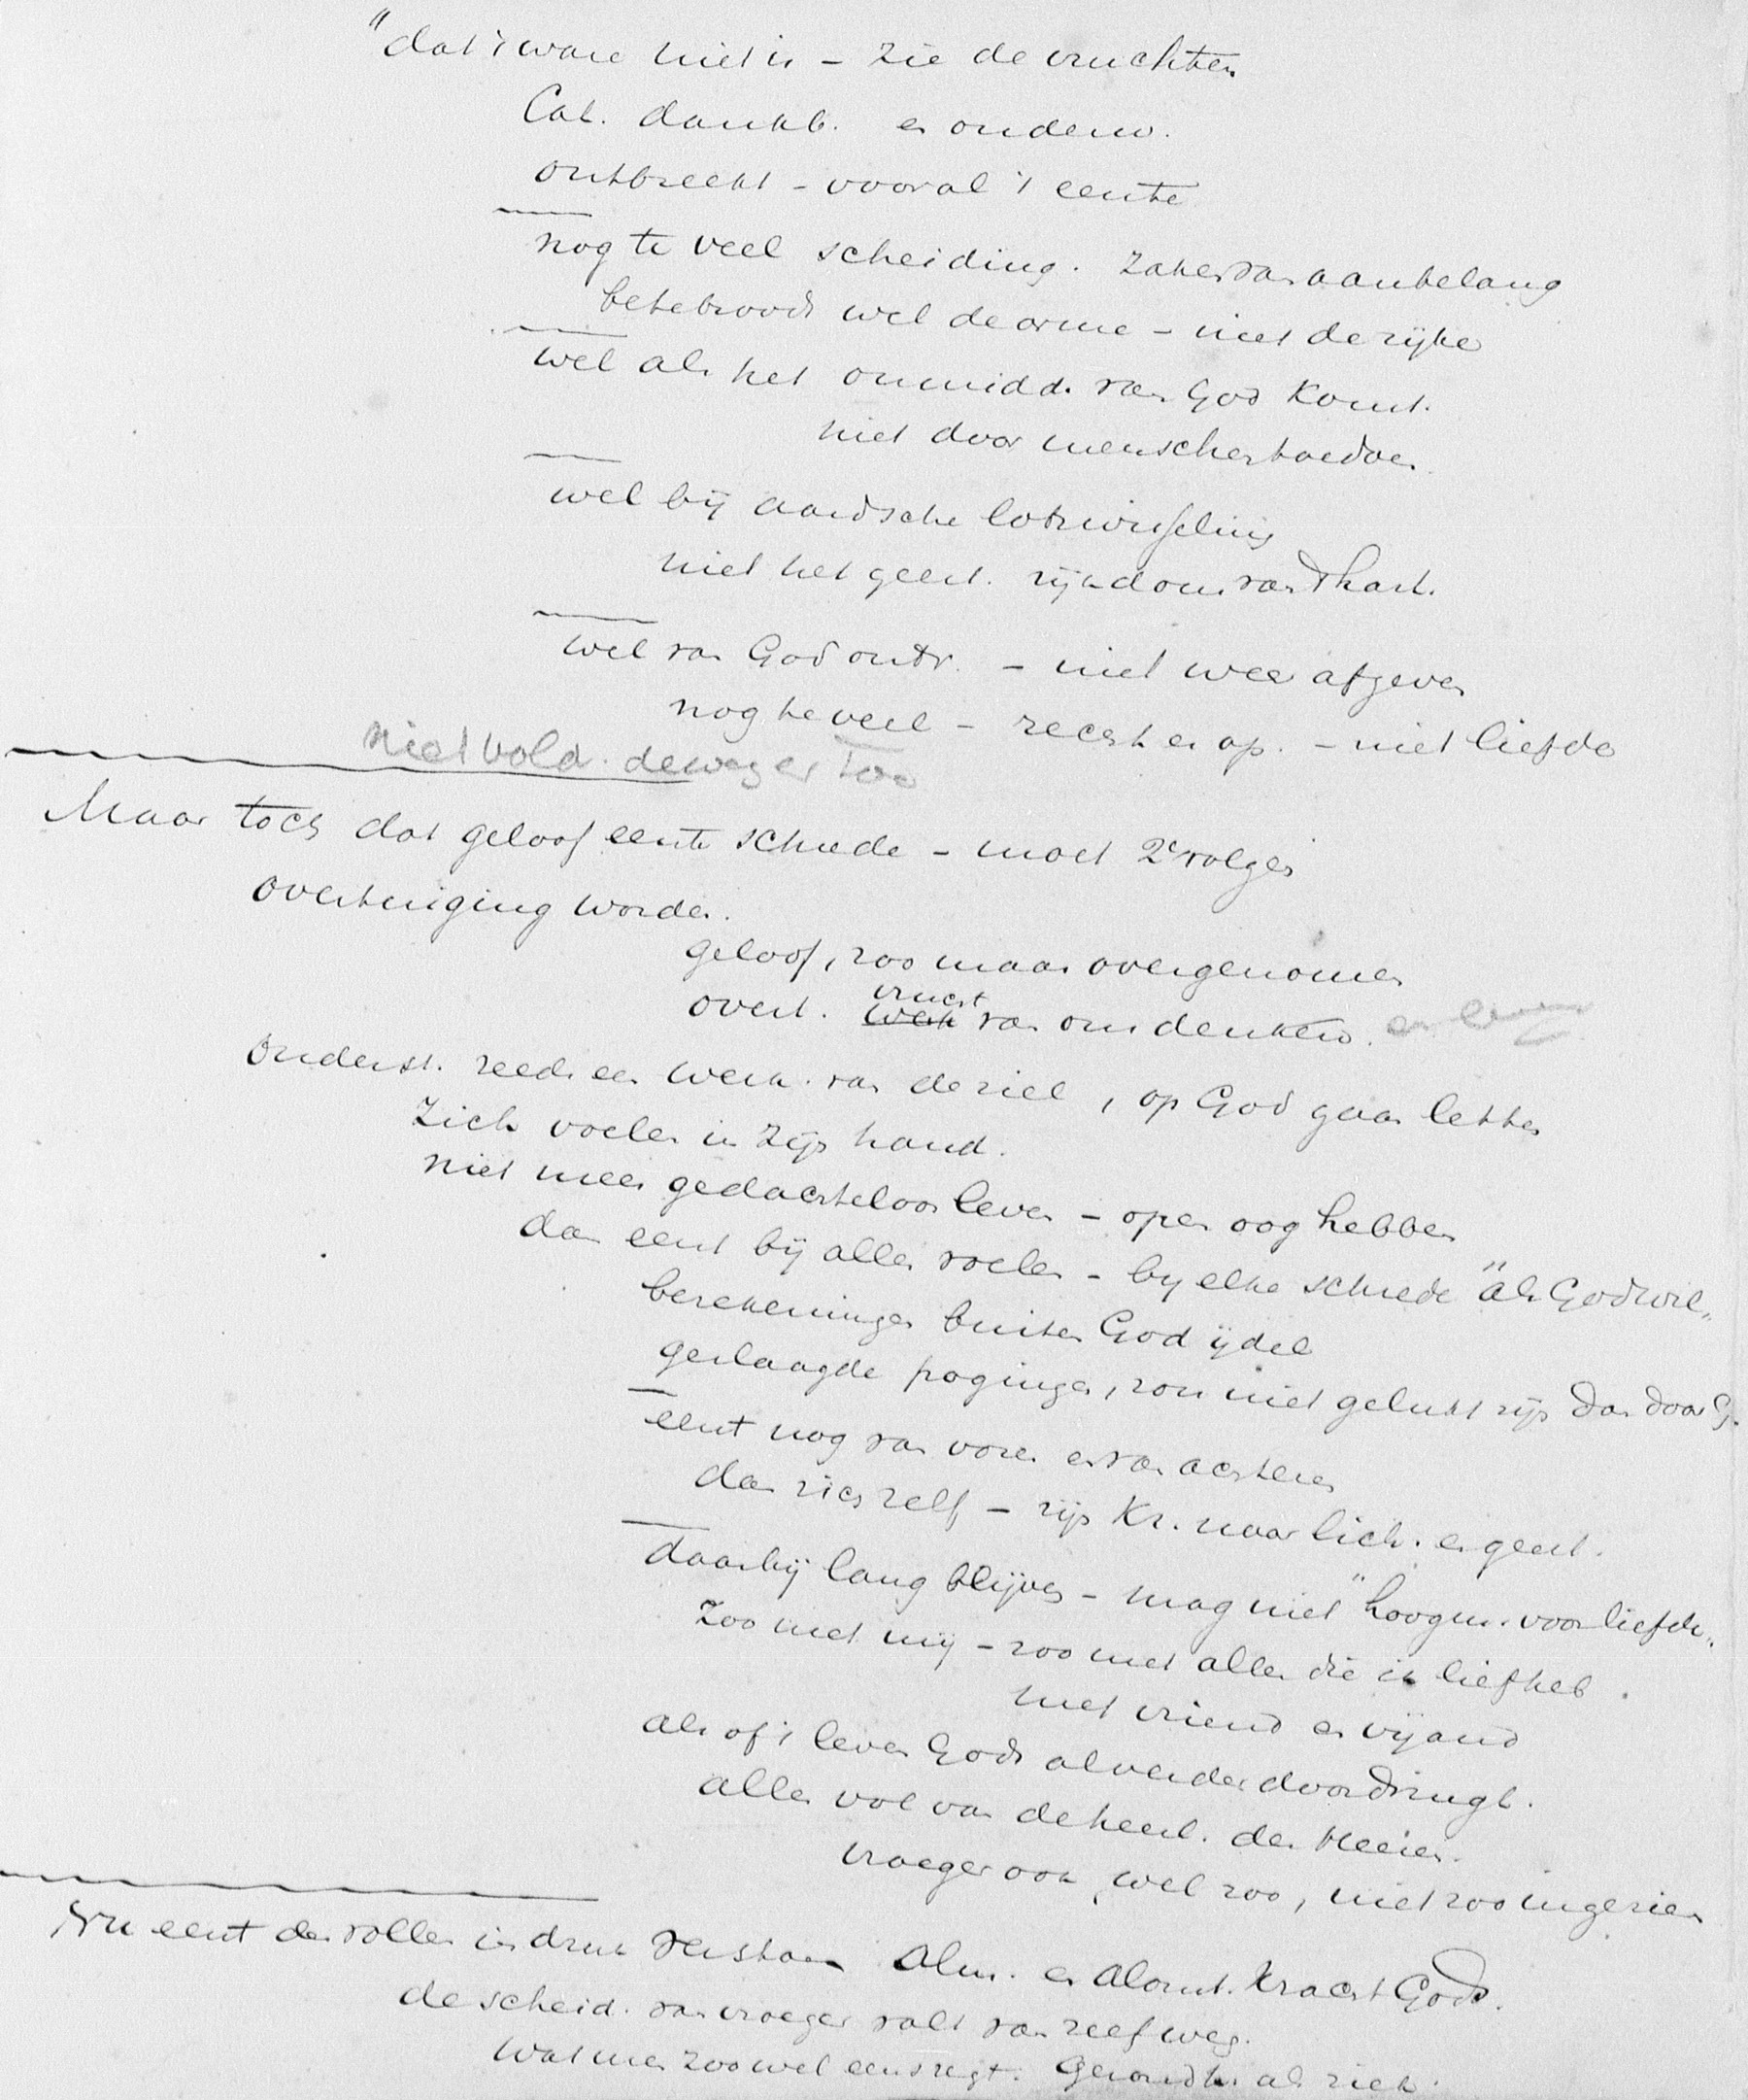 "dat 't ware niet is – zie de vruchten
Cat. dankb. en onderw.
ontbreekt – vooral 't eerste
nog te veel scheiding. Zaken van aanbelang
wel de arme – niet de rijke
wel als het onmidd. van God komt.
niet door menschen toedoen.
wel bij aardsche lotswisseling
niet het geest. rijkdom van 't hart.
wel van God ontv. – niet weer afgeven
nog te veel – recht er op. – niet liefde
niet vold. de weg er toe
Maar toch dat geloof eerste schrede – moet 2e volgen
overtuiging worden.
geloof, zoo maar overgenomen
overt. werk vrucht van ons denken.
Onderst. reeds een werk. van de ziel, op God gaan letten
Zich voelen in Zijn hand.
niet meer gedachteloos leven – open oog hebben
dan eerst bij alles voelen – by elke schrede "als God wil"
berekeningen buiten God ijdel
geslaagde pogingen, zou niet gelukt zijn dan door G.
eerst nog van voren en van achteren
dan zich zelf – zijn Kr. naar lich. en geest.
daarbij lang blijven – mag niet "hoogm. voor liefde"
Zoo met mij – zoo met allen die ik liefheb.
met vriend en vijand
als of 't leven Gods al verder doordringt.
alles vol van de heerl. des Heeren.
vroeger ook wel zoo, niet zoo ingezien
Nu eerst den vollen indruk verstaan Alm. en Alomt. kracht Gods.
de scheid. van vroeger valt van zelf weg.
Wat men zoo wel eens zegt. Gezondh. als ziek.